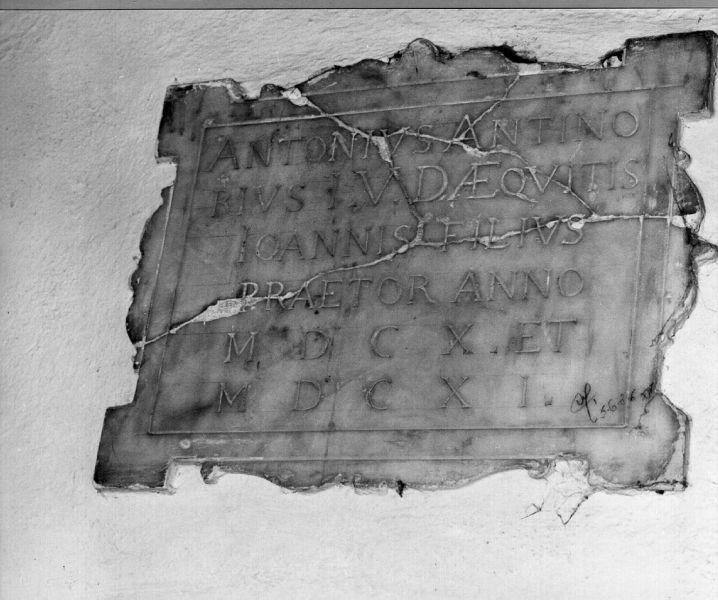 ANTONIVS ANTINO
RIVS I.V.D ÆQVITIS
IOANNIS FILIVS
PRAETOR ANNO
M D C X. ET
M D C X I.